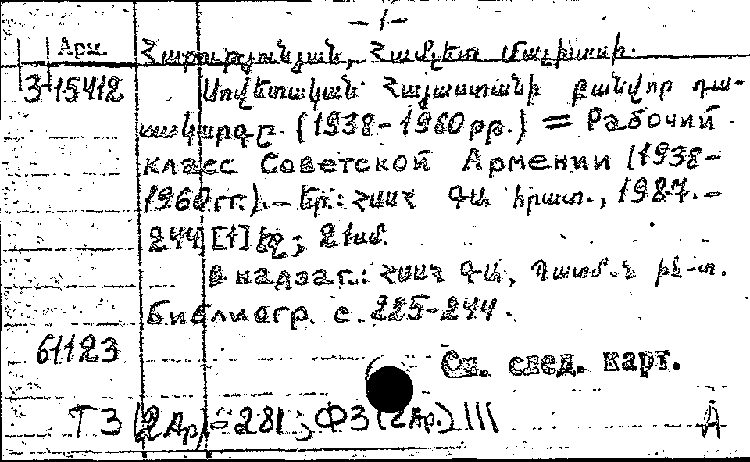 -1-
Арм.
Հարությունյան, Համլետ Մացիսի.
3-15412
Սովետական Հայաստանի բանվոր դա-
սակարգը. (1938-1960թթ.) = Рабочий
класс Советской Армении (1938-
1960гг.). - Եր.: ՀՍՍՀ ԳԱ հրատ., 1987. -
244,[1] էջ; 21սմ.
В надзаг.: ՀՍՍՀ ԳԱ, Պատմ-ն ին-տ.
библиогр. с. 225-244.
61123
См. след. карт.
Т3(2Ар)-281; Ф3(2Ар.) III
А